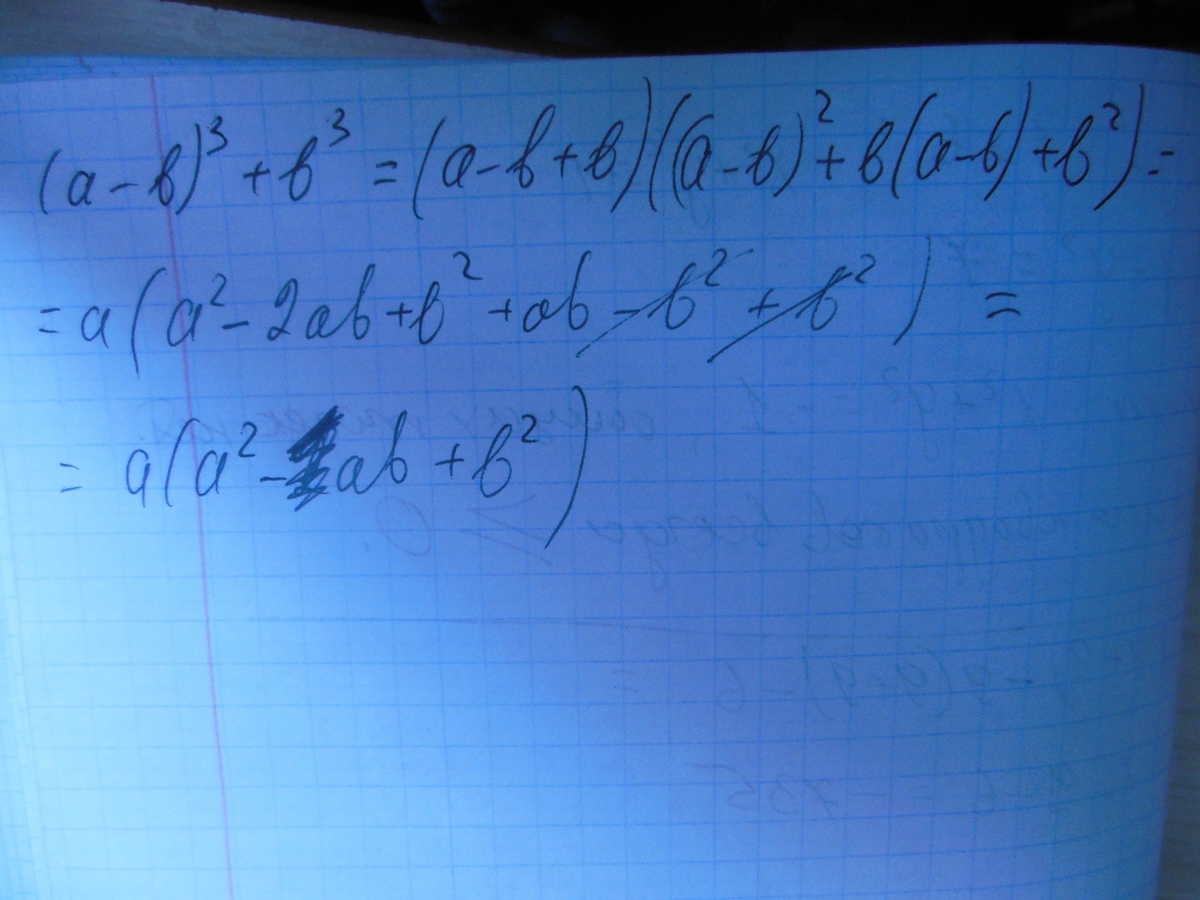 (a-b)³+b³=(a-b+b)((a-b)²+b(a-b)+b²)=
=a(a²-2ab+b²+ab-b²+b²)=
=a(a²-ab+b²)